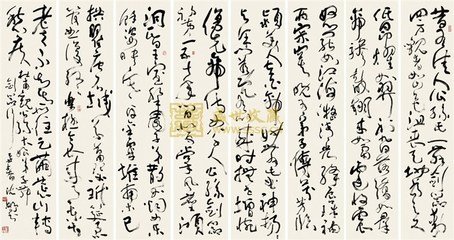 昔有佳人公孫氏一舞劍器動
四方觀者如山色沮喪天地為之久
低昂㸌如羿射九日落矯如
群帝驂龍翔來如雷霆收震
怒罷如江海凝清光絳唇珠袖
兩寂寞晚有弟子傳芬芳臨
潁美人在白帝妙舞此曲神揚揚
與余問答既有以感時撫事增惋
傷先帝侍女八千人公孫劍器
初第一五十年間似反掌風塵澒
洞昏王室梨園弟子散如煙女樂
餘姿映寒日金粟堆南木已
拱瞿唐石城草蕭瑟玳筵急
管曲復終樂極哀來月東出
老夫不知其所往足繭荒山轉
愁疾
劍器行